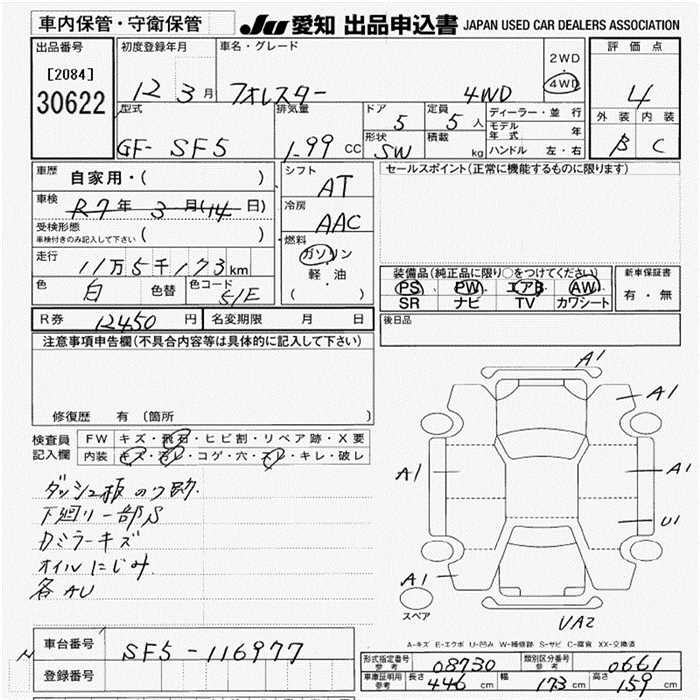 車内保管・守衛保管
JU 愛知 出品申込書 JAPAN USED CAR DEALERS ASSOCIATION
出品番号
[2084]
30622
初度登録年月
12年3月
車名・グレード
フォレスター 4WD
2WD
・
4WD
評価点
4
外装 内装
B C
型式
GF- SF5
排気量
1.99 CC
ドア
5
形状
SW
定員
5人
積載
kg
ディーラー・並行
モデル年式 年
ハンドル 左・右
車歴 自家用・( )
車検 R7年3月(14日)
受検形態
車検付きのみ記入して下さい ( )
走行
11万5千173km
色 白 色替
色コード 51E
シフト
AT
冷房
AAC
燃料
ガソリン
軽・油
( )
セールスポイント(正常に機能するものに限ります)
装備品(純正品に限り○をつけてください)
PS PW エアB AW
SR ナビ TV カワシート
新車保証書
有・無
後日品
R券 12450円 名変期限 月 日
注意事項申告欄(不具合内容等は具体的に記入して下さい)
修復歴 有 〔箇所 〕
検査員記入欄
FW キズ・飛石・ヒビ割・リペア跡・X要
内装 キズ・汚レ・コゲ・穴・スレ・キレ・破レ
ダッシュ板のリ跡
下廻り一部S
カミラーキズ
オイルにじみ
各AU
A1
A1
A1
A1
U1
A1
スペア
UA2
A-キズ E-エクボ U-凹み W-補修跡 S-サビ C-腐食 XX-交換済
車台番号 SF5-116977
登録番号
形式指定番号 参考 08730
類別区分番号 参考 0661
車庫証明用 参考 長さ 446cm 幅 173cm 高さ 159cm